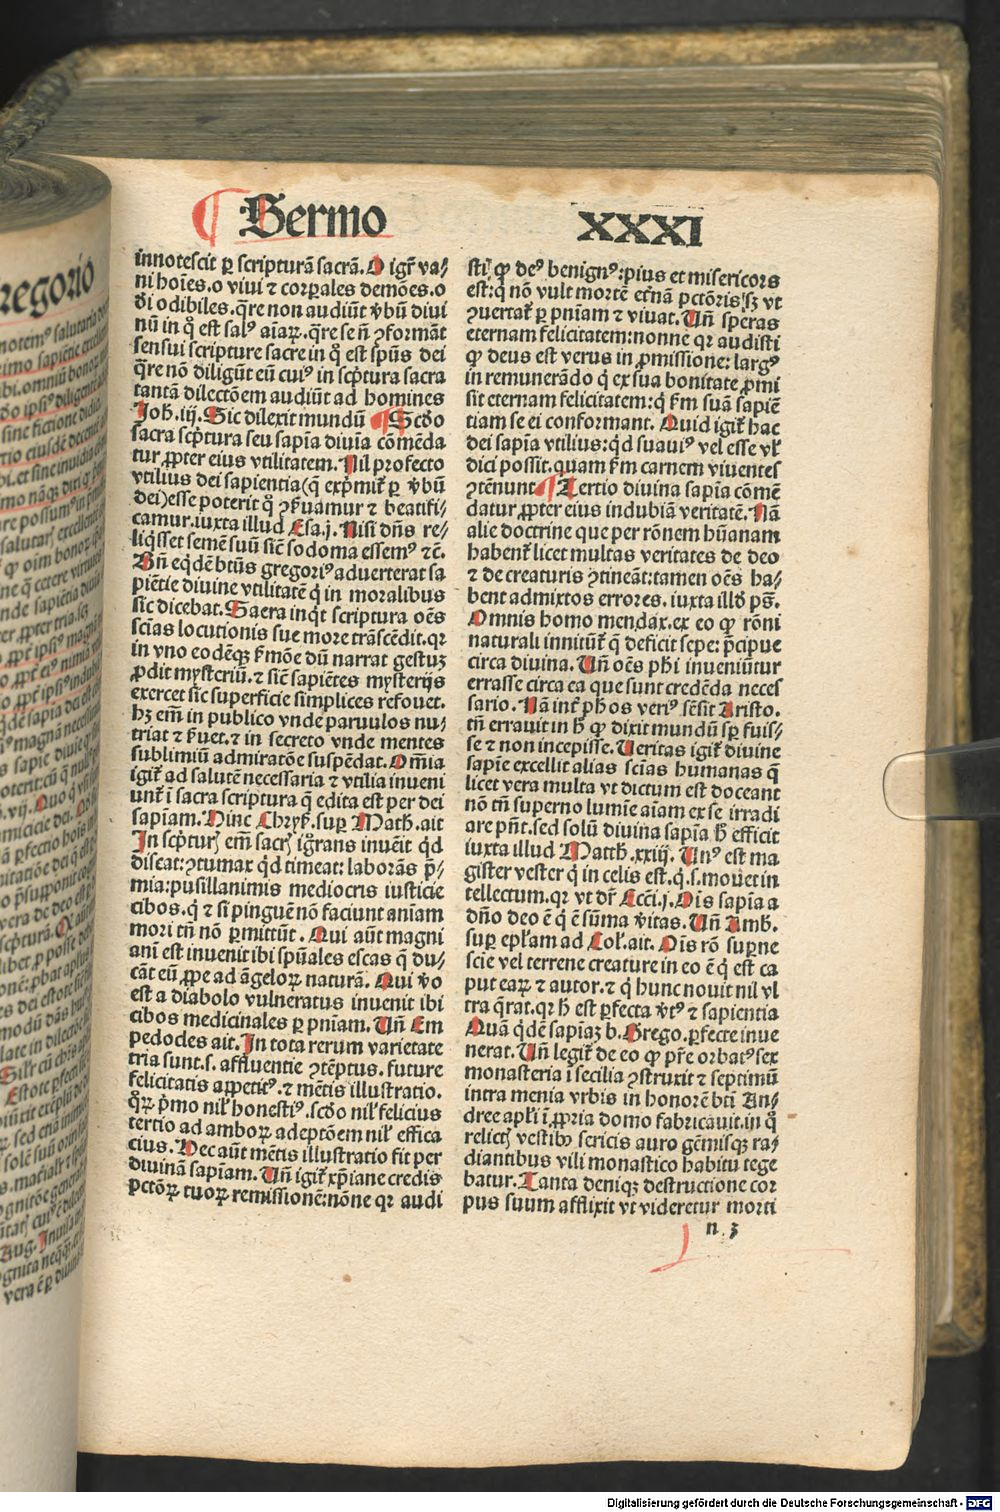 Sermo XXXI
innotescit ꝑ scripturā sacrā. O igr̄ va⸗
ni hoīes. o viui ⁊ corꝑales demōes. o
d̄i odibiles. q̄re non audiūt v̄bū diui
nū in q̊ est salꝰ aīaꝝ. q̄re se n̄ ꝯformāt
sensui scripture sacre in q̊ est spūs dei
q̄re nō diligūt eū cuiꝰ in scp̄tura sacra
tantā dilectōem audiūt ad homines
Joh. iij. Sic dilexit mundū ¶ Scd̄o
sacra scp̄tura seu sapīa diuīa cōmēda
tur ꝓpter eius vtilitatem. Nil profecto
vtilius dei sapientia (q̄ exp̄mit̄ ꝑ v̄bū
dei) esse poterit q̊ ꝯẜuamur ⁊ beatifi⸗
camur. iuxta illud Esa. j. Nisi dn̄s re⸗
liq̄sset semē suū sic̄ sodoma essemꝰ ⁊c̄.
Bn̄ eq̄dē btūs gregoriꝰ aduerterat sa
piētie diuine vtilitatē q̇ in moralibus
sic dicebat. Sacra inq̇t scriptura oēs
scīas locutionis sue more trāscēdit. qꝛ
in vno eodēqꝫ ẜmōe dū narrat gestuꝫ
ꝓdit mysteriū. ⁊ sic̄ sapiētes mysterijs
exercet sic superficie simplices refouet.
hꝫ em̄ in publico vnde paruulos nu⸗
triat ⁊ ẜuet. ⁊ in secreto vnde mentes
sublimiū admiratōe suspēdat. Om̄ia
igit̄ ad salutē necessaria ⁊ vtilia inueni
unt̄ ī sacra scriptura q̄ edita est per dei
sapīam. Hinc Chryẜ. suꝑ Math. ait
In scp̄turꝭ em̄ sacrꝭ ignrans inueit q̇d
discat: ꝯtumax q̇d timeat: laborās p̄⸗
mia: pusillanimis mediocris iusticie
cibos. q̇ ⁊ si pinguē nō faciunt aniam
mori tn̄ nō ꝑmittūt. Qui aūt magni
anī est inuenit ibi spūales escas q̄ du⸗
cāt eū ꝓpe ad āgeloꝝ naturā. Qui v̄o
est a diabolo vulneratus inuenit ibi
cibos medicinales ꝑ pn̄iam. Un̄ Em
pedodes ait. In tota rerum varietate
tria sunt. s. affluentie ꝯtēptus. future
felicitatis appetitꝰ. ⁊ mētis illustratio.
q̊ꝝ p̄mo nil honestiꝰ. scd̄o nil felicius
tertio ad amboꝝ adeptōem nil effica
cius. Hec aūt mētis illustratio fit per
diuinā sapīam. Un̄ igit̄ xp̄iane credis
pctōꝝ tuoꝝ remissionē: nōne qꝛ audi
sti ꝙ deꝰ benignꝰ: pius et misericors
est: q̇ nō vult mortē et̄nā pctōris: sꝫ vt
ꝯuertat̄ ꝑ pn̄iam ⁊ viuat. Un̄ speras
eternam felicitatem: nonne qꝛ audisti
ꝙ deus est verus in ꝓmissione: largꝰ
in remunerādo q̇ ex sua bonitate ꝓmi
sit eternam felicitatem: q̇ ẜm suā sapiē
tiam se ei conformant. Quid igit̄ hac
dei sapīa vtilius: q̇d suauiꝰ vel esse vl̄
dici possit. quam ẜm carnem viuentes
ꝯtēnunt ¶ Tertio diuina sapīa cōmē
datur ꝓpter eius indubiā veritatē. Nā
alie doctrine que per rōnem hūanam
habent̄ licet multas veritates de deo
⁊ de creaturis ꝯtineāt: tamen oēs ha⸗
bent admixtos errores. iuxta illd̄ ps̄.
Omnis homo mendax. ex eo ꝙ rōni
naturali innitūt̄ q̄ deficit sepe: p̄cipue
circa diuina. Un̄ oēs phī inueniūtur
errasse circa ea que sunt credēda neces
sario. Nā int̄ phōs veriꝰ sēsit Aristo.
tn̄ errauit in h̄ ꝙ dixit mundū sꝑ fuis⸗
se ⁊ non incepisse. Ueritas igit̄ diuine
sapīe excellit alias scīas humanas q̄
licet vera multa vt dictum est doceant
nō tn̄ superno lumīe aīam ex se irradi
are pn̄t. sed solū diuina sapīa h̄ efficit
iuxta illud Matth. xxiij. Unꝰ est ma
gister vester q̇ in celis est. q. s. mouet in
tellectum. qꝛ vt dr̄ Ecci. j. Ois sapīa a
dn̄o deo ē q̇ ē sūma v̄itas. Un̄ Amb.
suꝑ epl̄am ad Col. ait. Ois rō suꝑne
scie vel terrene creature in eo ē q̇ est ca
put eaꝝ ⁊ autor. ⁊ q̇ hunc nouit nil vl
tra q̄rat. qꝛ h̄ est ꝑfecta v̄tꝰ ⁊ sapientia
Quā q̇dē sapīaꝫ b. Grego. ꝑfecte inue
nerat. Un̄ legit̄ de eo ꝙ pr̄e orbatꝰ sex
monasteria ī secilia ꝯstruxit ⁊ septimū
intra menia vrbis in honorē bti An⸗
dree apl̄i ī ꝓpria domo fabricauit. in q̊
relictꝭ vestibꝰ sericis auro gēmisqꝫ ra⸗
diantibus vili monastico habitu tege
batur. Tanta deniqꝫ destructione cor
pus suum afflixit vt videretur morti
n. 3
Digitalisierung gefördert durch die Deutsche Forschungsgemeinschaft - DFG